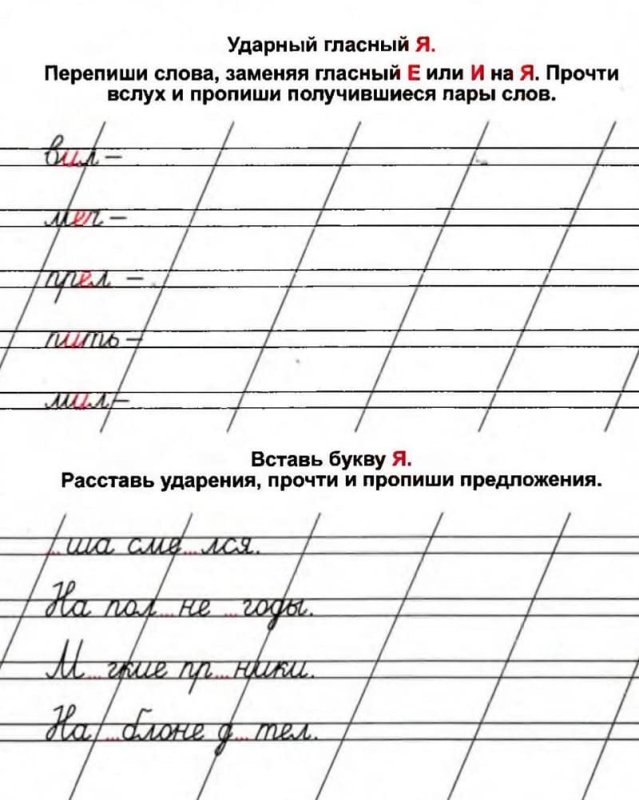 Ударный гласный Я.
Перепиши слова, заменяя гласный Е или И на Я. Прочти
вслух и пропиши получившиеся пары слов.
вил –
меч –
прел –
пить –
мил –
Вставь букву Я.
Расставь ударения, прочти и пропиши предложения.
...ша сме...лся.
На пол...не ...годы.
М...гкие пр...ники.
На ...блоне д...тел.